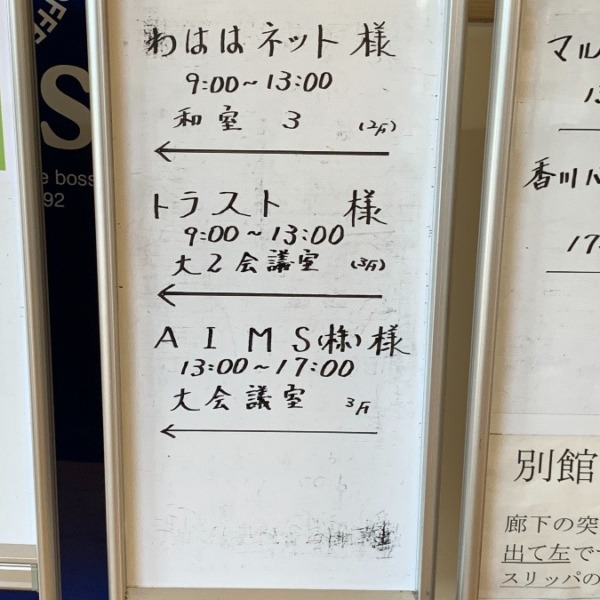 わははネット 様
9:00～13:00
和室 3 (2F)
トラスト 様
9:00～13:00
大2会議室 (3F)
AIMS(株)様
13:00～17:00
大会議室 3F
OFFE
S
e boss
92
マル
13
香川
17
別館
廊下の突
出て左で
スリッパの